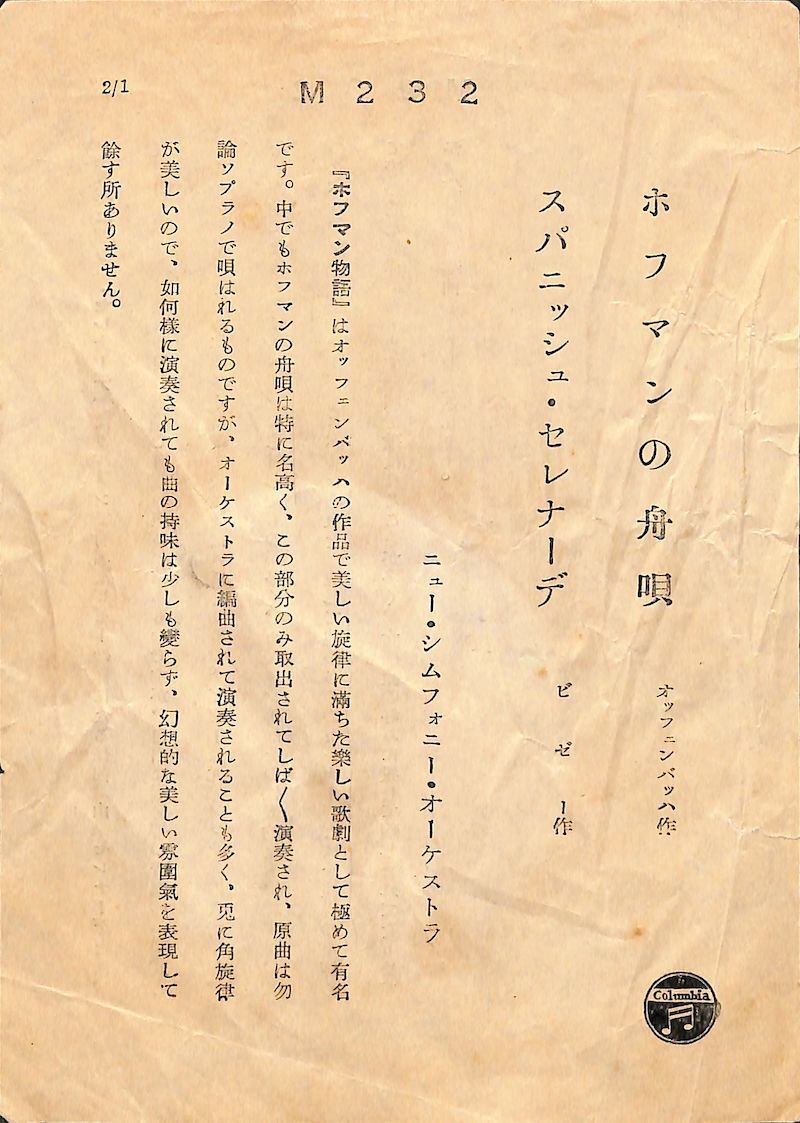 M232
2/1
ホフマンの舟唄
オッフェンバッハ作
スパニッシュ・セレナーデ
ビゼー作
ニュー・シムフォニー・オーケストラ
『ホフマン物語』はオッフェンバッハの作品で美しい旋律に満ちた樂しい歌劇として極めて有名
です。中でもホフマンの舟唄は特に名高く、この部分のみ取出されてしば〱演奏され、原曲は勿
論ソプラノで唄はれるものですが、オーケストラに編曲されて演奏されることも多く、兎に角旋律
が美しいので、如何様に演奏されても曲の持味は少しも變らず、幻想的な美しい雰圍氣を表現して
餘す所ありません。
Columbia